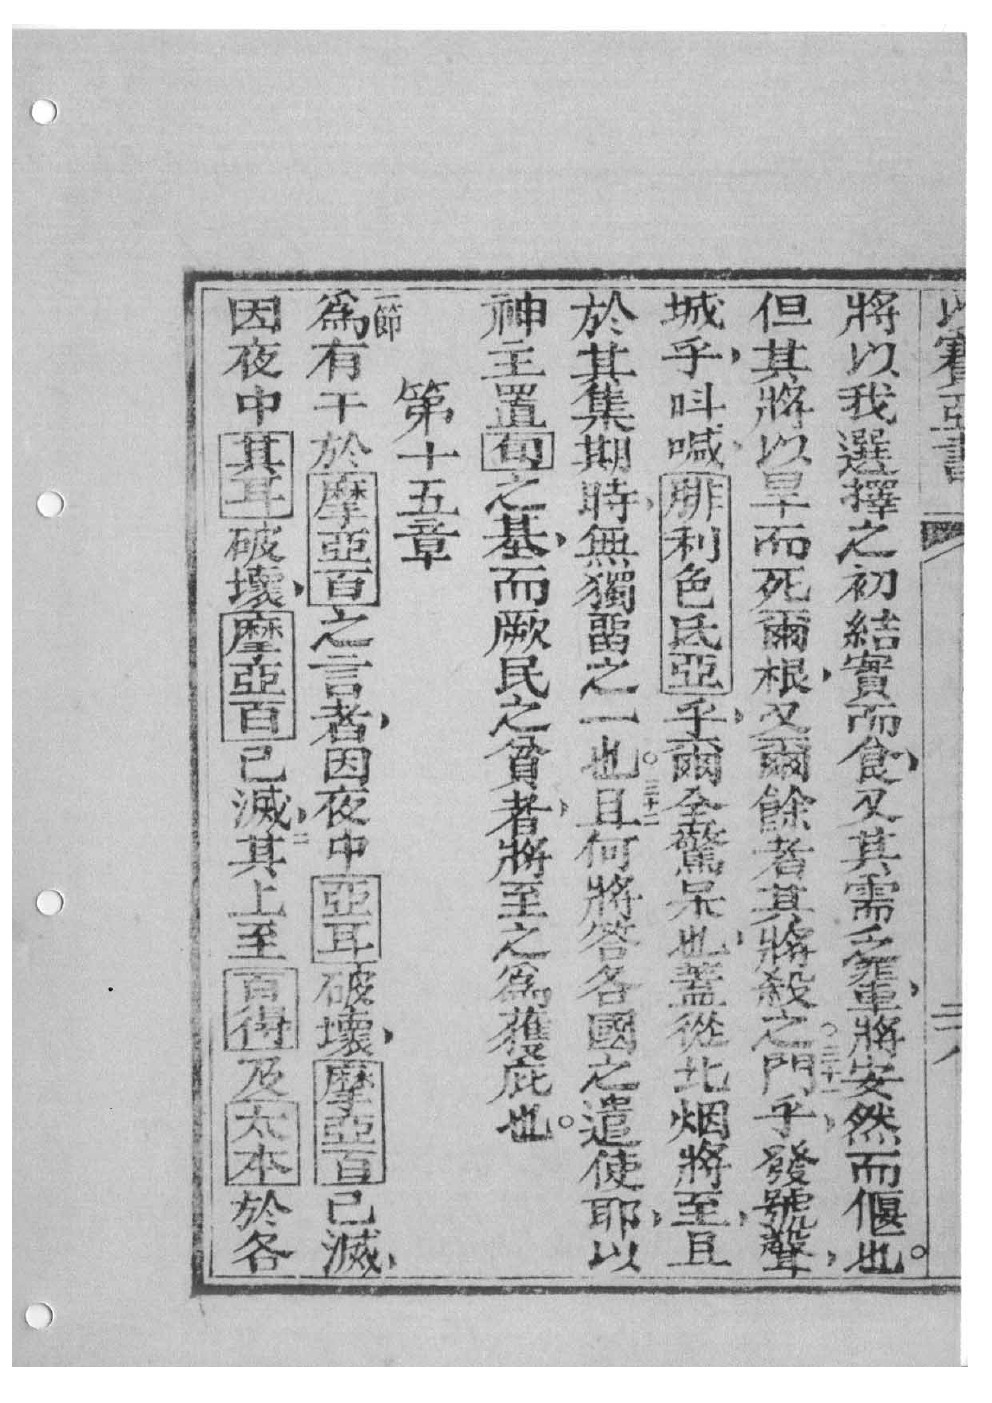 賽亞書 二八
將以我選擇之初結實而食、又其需乏輩、將安然而偃也。
但其將以旱而死爾根、又爾餘者其將殺之。三十一門乎、發號聲、
城乎、呌喊、腓利色氐亞乎、爾全驚呆也、蓋從北烟將至、且
於其集期時、無獨畱之一也。三十二且何將答各國之遣使耶、以
神主置旬之基、而厥民之貧者、將至之為獲庇也。
第十五章
一節為有干於摩亞百之言者、因夜中亞耳破壞、摩亞百已滅、
因夜中其耳破壞、摩亞百已滅、二其上至百得及太本於各